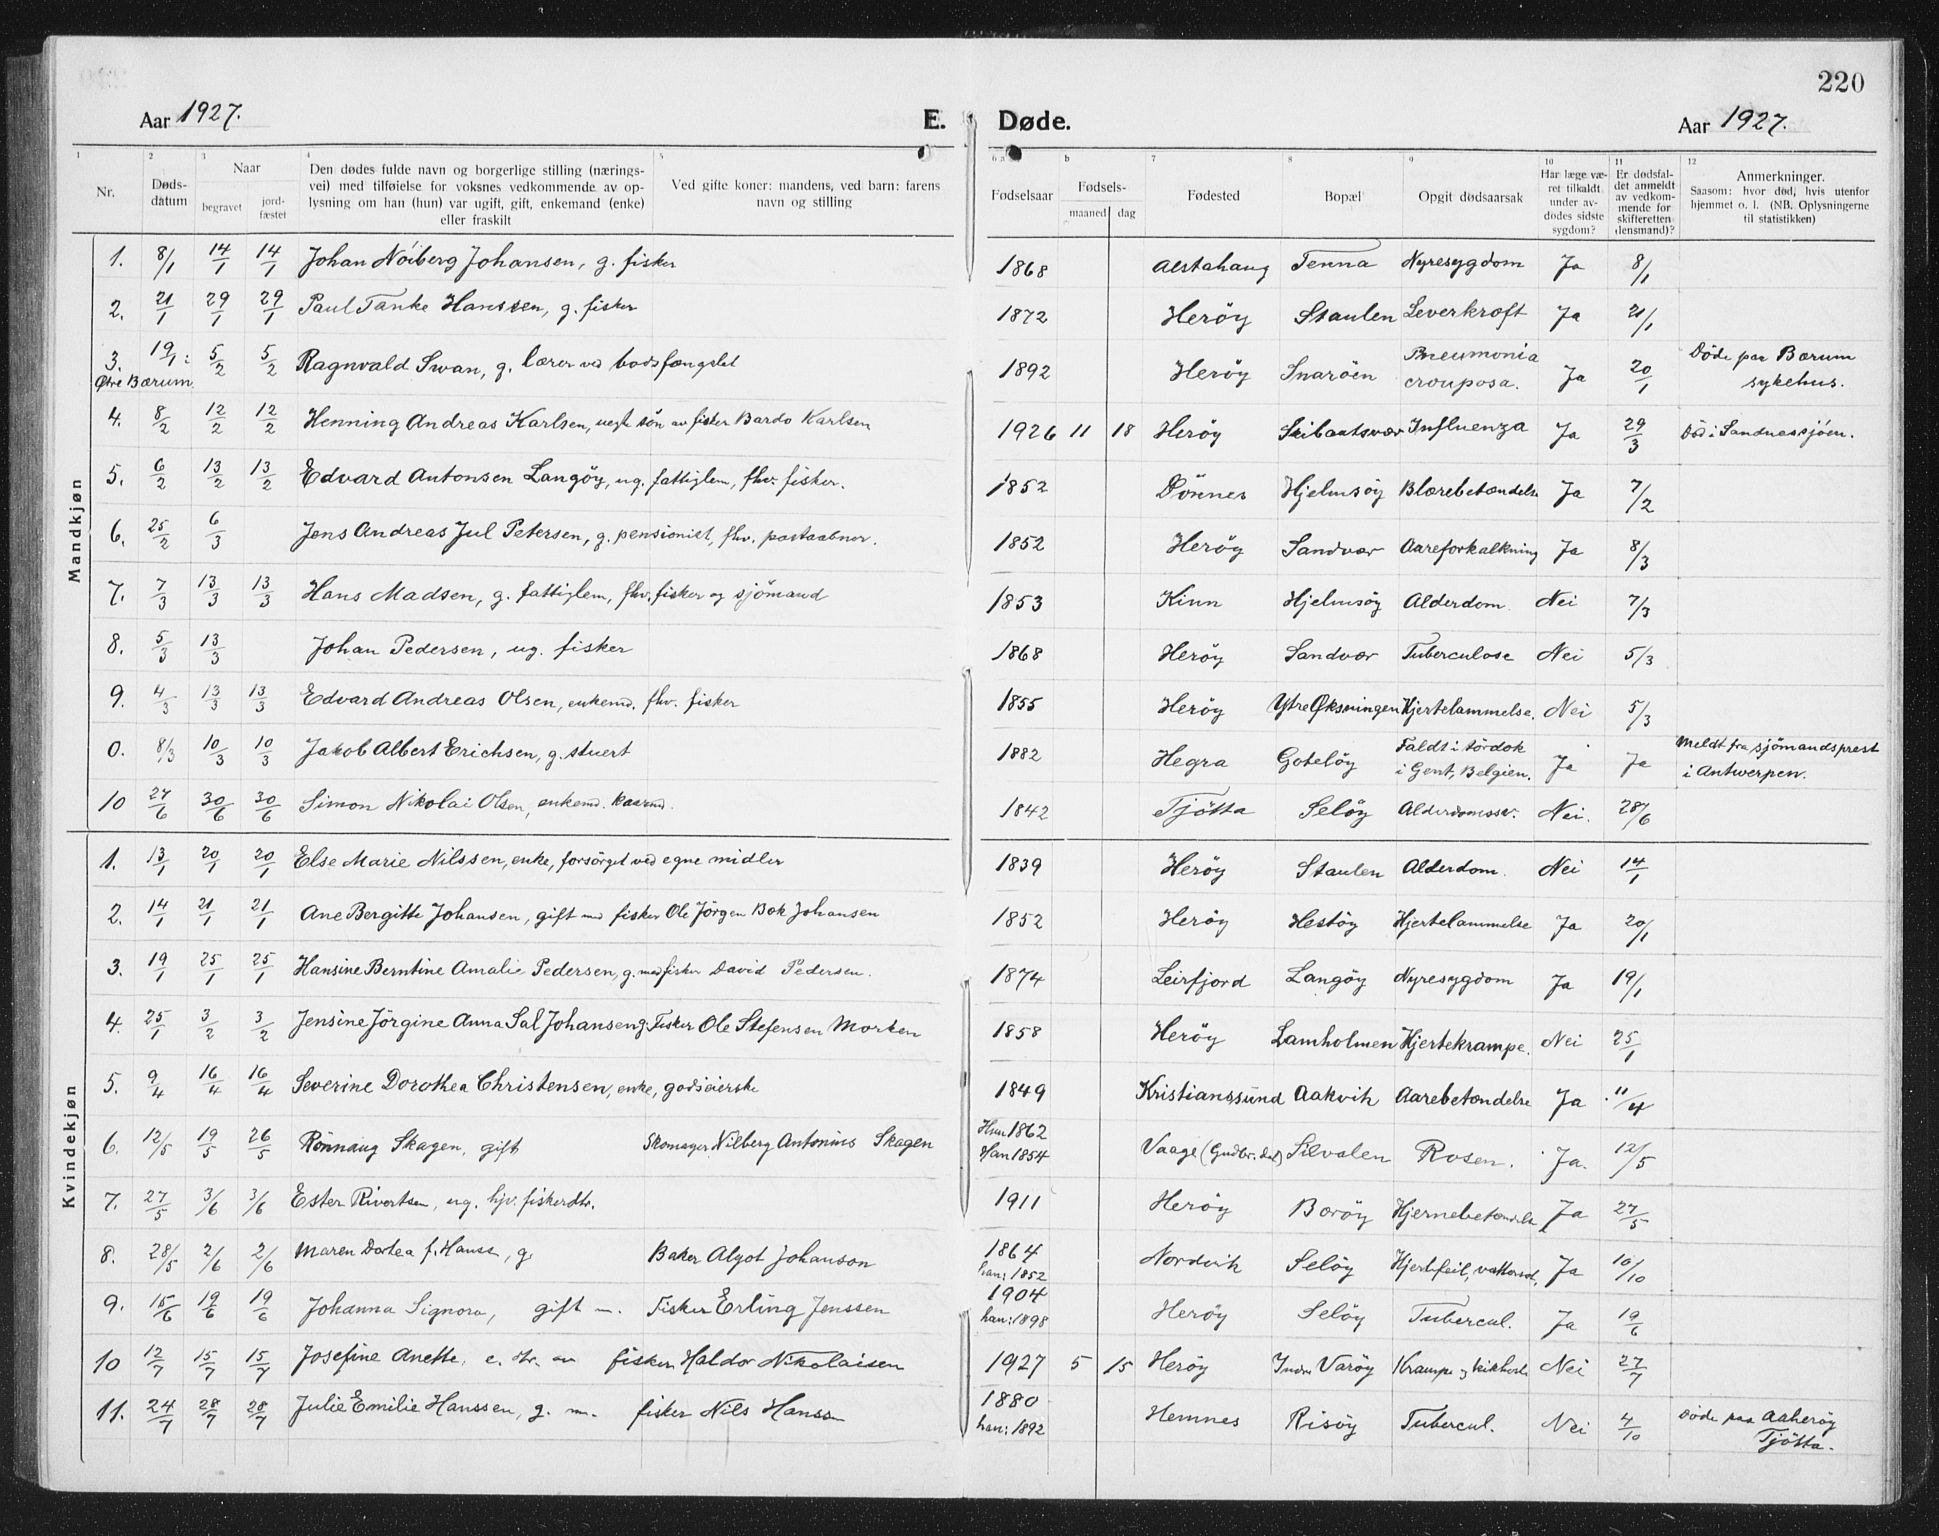 220
Aar 1927. E. Døde. Aar 1927.
1 2 3 4 5 6 a b 7 8 9 10 11 12
Nr. Døds-datum Naar begravet jord-fæstet Den dødes fulde navn og borgerlige stilling (nærings-vei) med tilføielse for voksnes vedkommende av op-lysning om han (hun) var ugift, gift, enkemand (enke) eller fraskilt Ved gifte koner: mandens, ved barn: farens navn og stilling Fødselsaar Fødsels- maaned dag Fødested Bopæl Opgit dødsaarsak Har læge væ-ret tilkaldt under av-dødes sidste sygdom? Er dødsfal-det anmeldt av vedkom-mende for skifteretten (lensmand)? Anmerkninger. Saasom: hvor død, hvis utenfor hjemmet o. l. (NB. Oplysningerne til statistikken)
Mandkjøn
1. 8/1 14/1 14/1 Johan Nöiberg Johansen, g. fisker 1868 Alstahaug Tenna Nyresygdom Ja 8/1
2. 21/1 29/1 29/1 Paul Tanke Hanssen, g. fisker 1872 Heröy Staulen Leverkræft Ja 21/1
3. 19/1: 5/2 5/2 Ragnvald Swan, g. lærer ved bodsfængslet 1892 Heröy Snaröen Pneumonia crouposa. Ja 20/1 Døde paa Bærum sykehus.
Øtre Bærum.
4. 8/2 12/2 12/2 Henning Andreas Karlsen, uegte sön av fisker Bardo Karlsen 1926 11 18 Heröy Skibaatsvær Influenza Ja 29/3 Död i Sandnessjöen.
5. 6/2 13/2 13/2 Edvard Antonsen Langöy, ug. fattiglem, fhv. fisker. 1852 Dönnes Hjelmsöy Blærebetændelse Ja 7/2
6. 25/2 6/3 Jens Andreas Jul Petersen, g. pensionist, fhv. postaabner. 1852 Heröy Sandvær Aareforkalkning Ja 8/3
7. 7/3 13/3 13/3 Hans Madsen, g. fattiglem, fhv. fisker og sjömand 1853 Kinn Hjelmsöy Alderdom. Nei 7/3
8. 5/3 13/3 Johan Pedersen, ug. fisker 1868 Heröy Sandvær Tuberculose Nei 5/3
9. 4/3 13/3 13/3 Edvard Andreas Olsen, enkemd. fhv. fisker 1855 Heröy Ytre Øksningen Hjertelammelse. Nei 5/3
0. 8/3 10/3 10/3 Jakob Albert Erichsen, g. stuert 1882 Hegra Gotelöy Faldt i tördok i Gent, Belgien. Ja Ja Meldt fra sjömandsprest i Antwerpen.
10 27/6 30/6 30/6 Simon Nikolai Olsen, enkemd. kaarmd. 1842 Tjötta Selöy Alderdomssv. Nei. 28/6
Kvindekjøn
1. 13/1 20/1 20/1 Else Marie Nilssen, enke, forsörget ved egne midler 1839 Heröy Staulen Alderdom. Nei 14/1
2. 14/1 21/1 21/1 Ane Bergitte Johansen, gift med fisker Ole Jörgen Bok Johansen 1852 Heröy Hestöy Hjertelammelse Ja 20/1
3. 19/1 25/1 25/1 Hansine Berntine Amalie Pedersen, g. med fisker David Pedersen. 1874 Leirfjord Langöy Nyresygdom Ja 19/1
4. 25/1 3/2 3/2 Jensine Jörgine Anna Sal Johansen g. Fisker Ole Stefensen Morken 1858 Heröy Lamholmen Hjertekrampe. Nei 25/1
5. 9/4 16/4 16/4 Severine Dorothea Christensen, enke, godseierske 1849 Kristianssund Aakvik Aarebetændelse Ja. 11/4
6. 12/5 19/5 26/5 Rönnaug Skagen, gift Skomager Nilberg Antonius Skagen Hun 1862 Han 1854 Vaage (Gudbr. dal) Silvalen Rosen. Ja. 12/5
7. 27/5 3/6 3/6 Ester Rivertsen, ug. hjv. fiskerdtr. 1911 Heröy Boröy Hjernebetændelse Ja 27/5
8. 28/5 2/6 2/6 Maren Dortea f. Hanss, g. Baker Algot Johanson 1864 han: 1852 Nordvik Selöy Hjertfeil, vattersot, Ja 10/10
9. 15/6 19/6 19/6 Johanna Signora, gift m. Fisker Erling Jenssen 1904 han: 1898 Heröy Selöy Tubercul. Ja 19/6
10 12/7 15/7 15/7 Josefine Anette, e. dtr. av fisker Haldor Nikolaisen 1927 5 15 Heröy Indre Varöy Krampe og kikhoste Nei 27/7
11. 24/7 28/7 28/7 Julie Emilie Hanssen, g. m. fisker Nils Hanssn 1880 han: 1892 Hemnes Risöy Tubercul. Nei 4/10 Døde paa Aakeröy Tjötta.